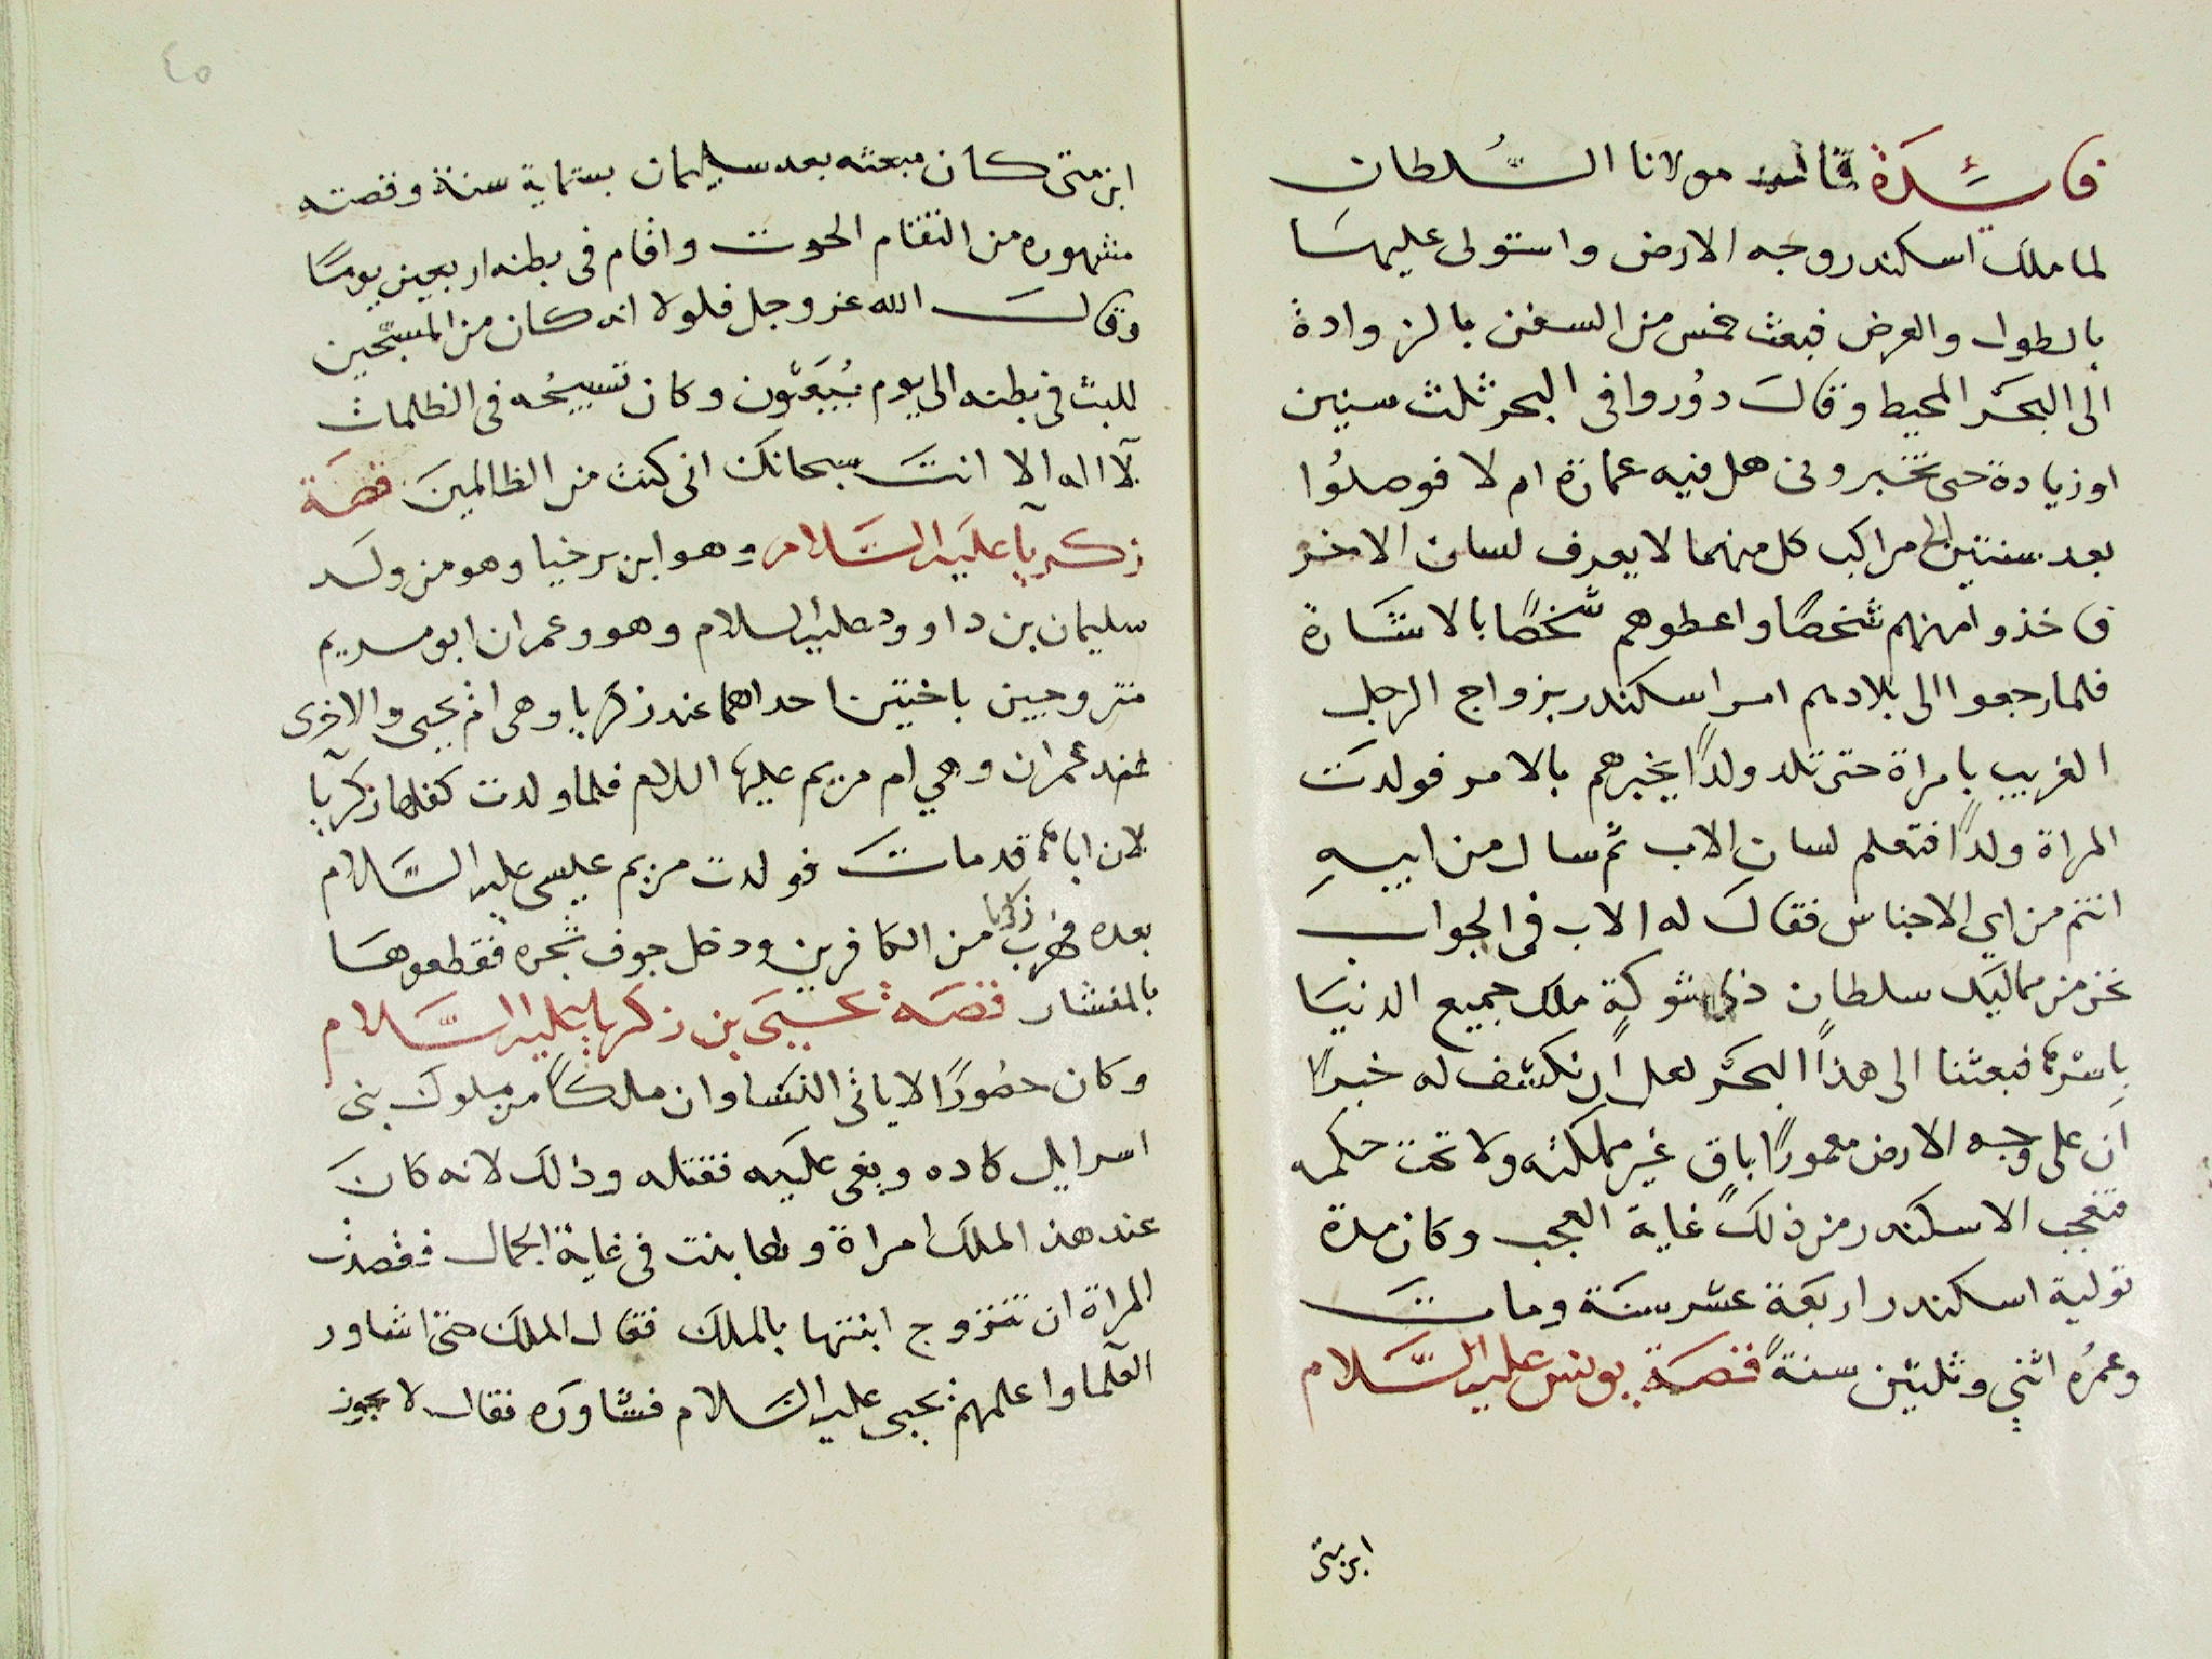 فائدة قال مولانا السُلطان
لما ملك اسكندر وجه الارض واستولى عليها
بالطول والعرض فبعث خمس من السفن بالزوادة
الى البحر المحيط وقال دُوروا فى البحر ثلث سنين
او زيادة حتى تخبرونى هل فيه عمارة ام لا فوصلُوا
بعد سنتين الى مراكب كل منهما لا يعرف لسان الاخر
فاخذوا منهم شخصًا واعطوهم شخصًا بالاشارة
فلما رجعوا الى بلادهم امر اسكندر بزواج الرجل
الغريب بامراة حتى تلد ولدًا يخبرهم بالامر فولدت
المراة ولدًا فتعلم لسان الاب ثم سال من ابيهِ
انتم من اي الاجناس فقال له الاب فى الجواب
نحن من مماليك سلطان ذى شوكةٍ ملك جميع الدنيا
باسرها فبعثنا الى هذا البحر لعل ان نكشف له خبرًا
ان على وجه الارض معمورًا باق غير مملكته ولا تحت حكمه
فتعجب الاسكندر من ذلك غاية العجب وكان مدة
تولية اسكندر اربعة عشر سنة ومات
وعمرُه اثني وثلثين سنةً قصة يونس عليه السَّلام
ابن متى
٤٥
ابن متى كان مبعثه بعد سليمان بستماية سنة وقصته
مشهوره من التقام الحوت واقام فى بطنه اربعين يومًا
وقال الله عز وجل فلولا انه كان من المسبّحين
للبث فى بطنه الى يوم يُبعَثون وكان تسبيحُه فى الظلمات
لآ اله الا انت سبحانك انى كنت من الظالمين قصة
زكريآ عليه السَّلام وهو ابن برخيا وهو من ولد
سليمان بن داوود عليه السلام وهو وعمران ابو مريم
متزوجين باختين احداهما عند زكريا وهى ام يحيى والاخرى
عند عمران وهي ام مريم عليها السلام فلما ولدت كفلها زكريآ
لان اباها قد مات فولدت مريم عيسى عليه السَّلام
بعده فهرب زكريا من الكافرين ودخل جوف شجره فقطعوها
بالمنشار قصة يحيى بن زكريا عليه السَّلام
وكان حصُورًا لا ياتى النسا وان ملكًا من ملوك بنى
اسرايل كاده وبغى عليه فقتله وذلك لانه كان
عند هذ الملك امراة ولها بنت فى غاية الجمال فقصدت
المراة ان تتزوج ابنتها بالملك فقال الملك حتى اشاور
العلما واعلمهم يحيى عليه السلام فشاوره فقال لا يجوز